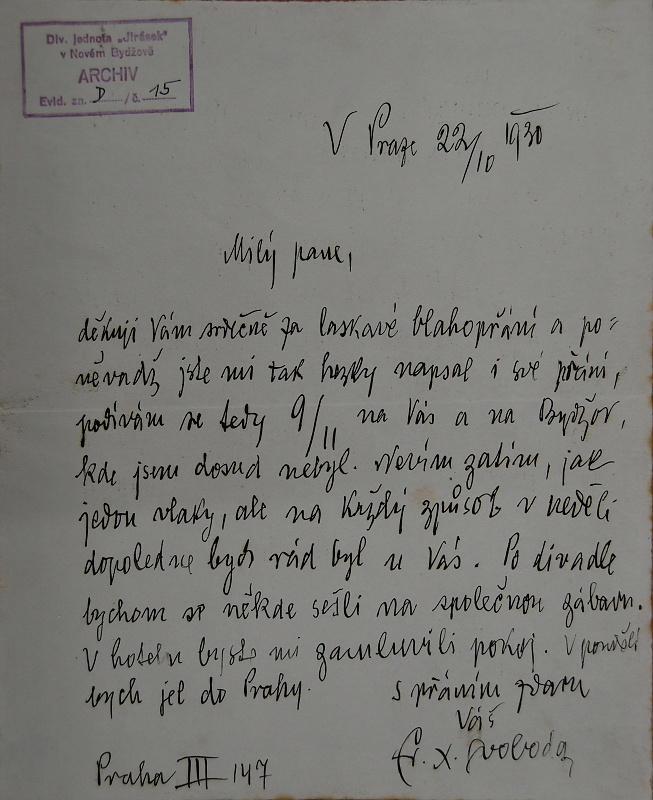 Div. jednota „Jirásek“
v Novém Bydžově
ARCHIV
Evid. zn. D /č. 15
V Praze 22/10 1930
Milý pane,
děkuji Vám srdečně za laskavé blahopřání a po-
něvadž jste mi tak hezky napsal i své přání,
podívám se tedy 9/11 na Vás a na Bydžov,
kde jsem dosud nebyl. Nevím zatím, jak
jedou vlaky, ale na každý způsob v neděli
dopoledne bych rád byl u Vás. Po divadle
bychom se někde sešli na společnou zábavu.
V hotelu byste mi zamluvili pokoj. V pondělí
bych jel do Prahy.
s přáním zdaru
Váš
Fr. X. Svoboda
Praha III 147